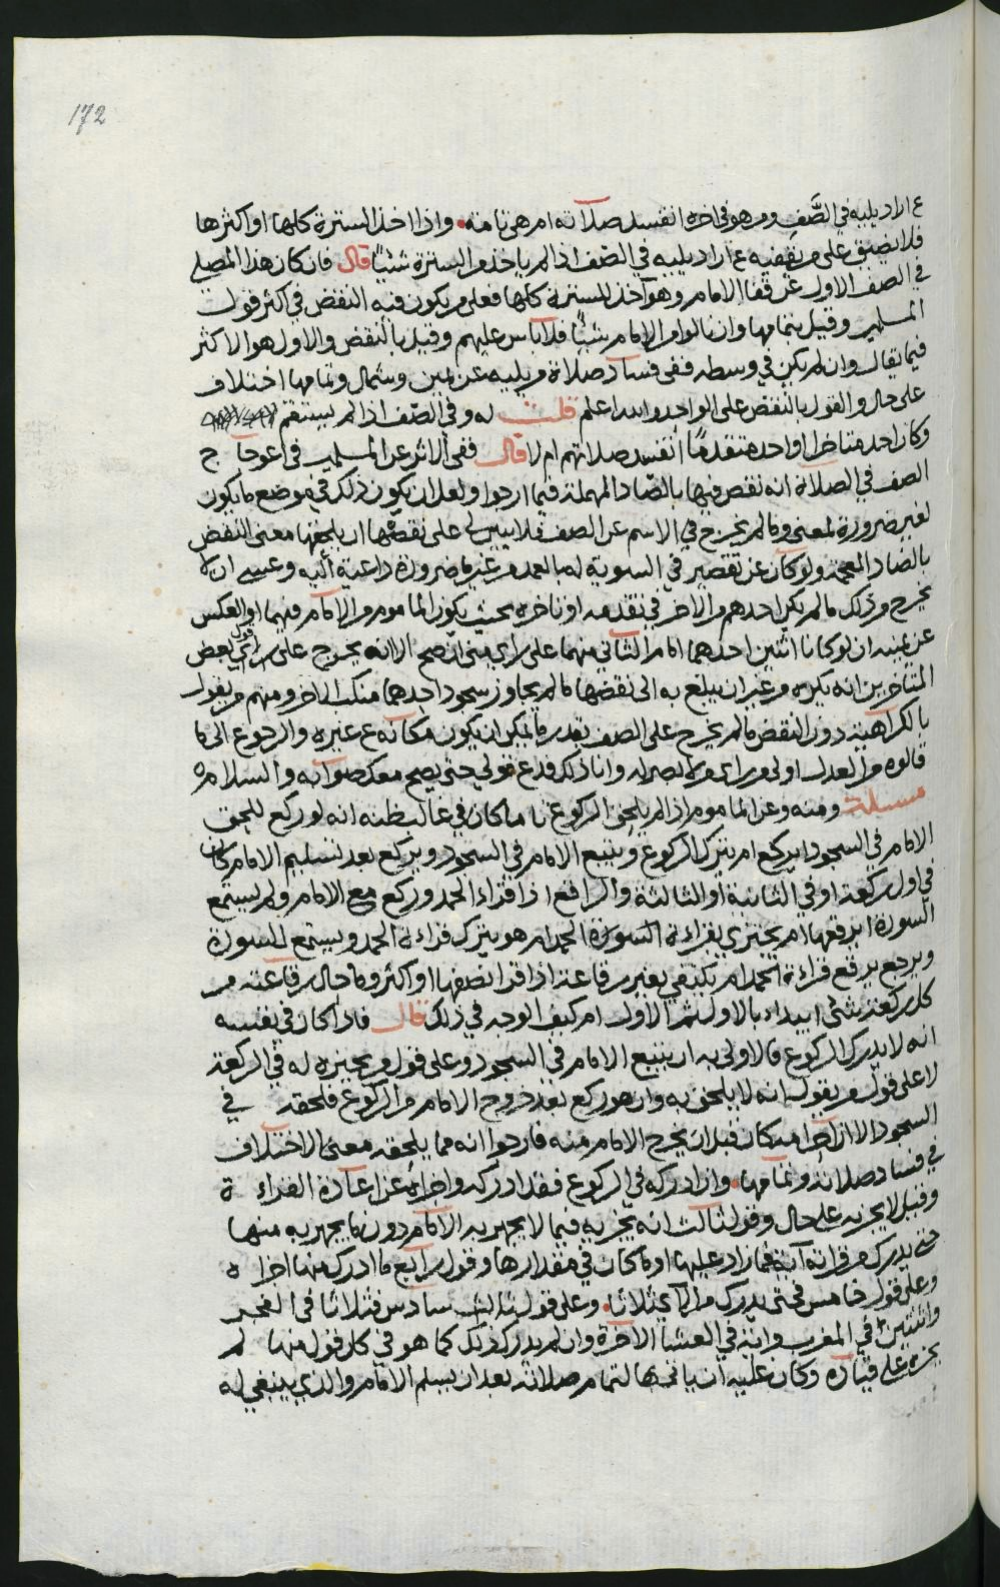 172
ع اراد يليه في الصف ومن هو في اخره اتفسد صلاته ام هي تامة. واذا اخذ السترة كلها او اكثرها
فلا تضيق على من يقفيه ع اراد يليه في الصف اذ الم ياخذ من السترة شيئا قال فان كان هذا المصلي
في الصف الاول عن قفا الامام وهو آخذ للسترة كلها فعلى من يكون فيه النقض في اكثر قول
المسلمين وقيل بتمامها وان نالوا من الامام شيئا فلا باس عليهم وقيل بالنقض والاول هو الاكثر
فيما يقال وان لم يكن في وسطه ففي فساد صلاة من يليه عن يمين وشمال وتمامها اختلاف
على حال والقول بالنقض على الواحد والله اعلم قلت له وفي الصف اذا لم يستقم
وكان احد متاخرا وواحد متقدما اتفسد صلاتهم ام لا قال ففي الاثر عن المسلمين في اعوجا ج
الصف في الصلاة انه نقص فيها بالصاد المهملة فيما ارجوا ولعل ان يكون ذلك في موضع ما يكون
لغير ضرورة لمعنى وما لم يخرج في الاسم عن الصف فلا يبين لي على نقصها ان يلحقها معنى النقض
بالضاد المعجمة ولو كان عن تقصير في السوية له بالعمد من غير ما ضرورة داعية اليه وعسى ان لا
يخرج من ذلك ما لم يكن احدهم من الاخر في تقدمه او تاخره بحيث يكون الماموم من الامام فيهما او العكس
عن يمينه ان لو كانا اثنين احدهما امام الثاني منهما على راي متى ان صح الا انه يخرج على قول بعض
المتاخرين انه يكره من غير ان يبلغ به الى نقضها ما لم يجاوز سجود احدهما منكب الاخر ومنهم من يقول
بالكراهية دون النقض ما لم يخرج على الصف بقدر ما يمكن ان يكون مكانه ع غيره والرجوع الى ما
قالوه من العدل اولى من راي من لا بصر له وانا ذلك فدع قولي حتى يصح معك صوابه والسلام
مسئلة ومنه وعن الماموم اذا لم يلحق الركوع ناما كان في غالب ظنه انه لو ركع للحق
الامام في السجود ايركع ام يترك الركوع ويتبع الامام في السجود ويركع بعد تسليم الامام كان
في اول ركعة او في الثانية او الثالثة والرافع اذا قراء الحمد وركع مع الامام ولم يستمع
السورة ايرقعها ام يجتزي بقراءة السورة الحمد ام هو يترك قراءة الحمد ويستمع للسورة
ويرجع يرقع قراءة الحمد ام يكتفي بغير رقاعة اذا قرا نصفها او اكثر وما حال رقاعته من
كل ركعة شئ ايبداء بالاول ثم الاول ام كيف الوجه في ذلك قال فاذا كان في نفسه
انه لا يدرك الركوع فالاولى به ان يتبع الامام في السجود وعلى قول من يجيزه له في الركعة
لا على قول من يقول انه لا يلحق به وان هو ركع بعد خروج الامام من الركوع فلحقه في
السجود الا ان احرامه كان قبل ان يخرج الامام منه فارجوا انه مما يلحقه معنى الاختلاف
في فساد صلاته وتمامها. وان ادركه في الركوع فقد ادركه واجزاه عن اعادة القراءة
وقيل لا يجزيه على حال وقول ثالث انه يجزيه فيما لا يجهر به الامام دون ما يجهر به منها
حتى يدرك من قراته آية فما زاد عليها او ما كان في مقدارها وقول رابع ما ادرك منها اجزاه
وعلى قول خامس فحتى يدرك من الآي ثلاثا. وعلى قول ثالث سادس فثلاثا في الفجر
واثنتين في المغرب واية في العشا الاخرة وان لم يدرك ذلك كما هو في كل قول منها لم
يجزه على قياده وكان عليه ان ياتي بها لتمام صلاته بعد ان يسلم الامام والذي ينبغي له